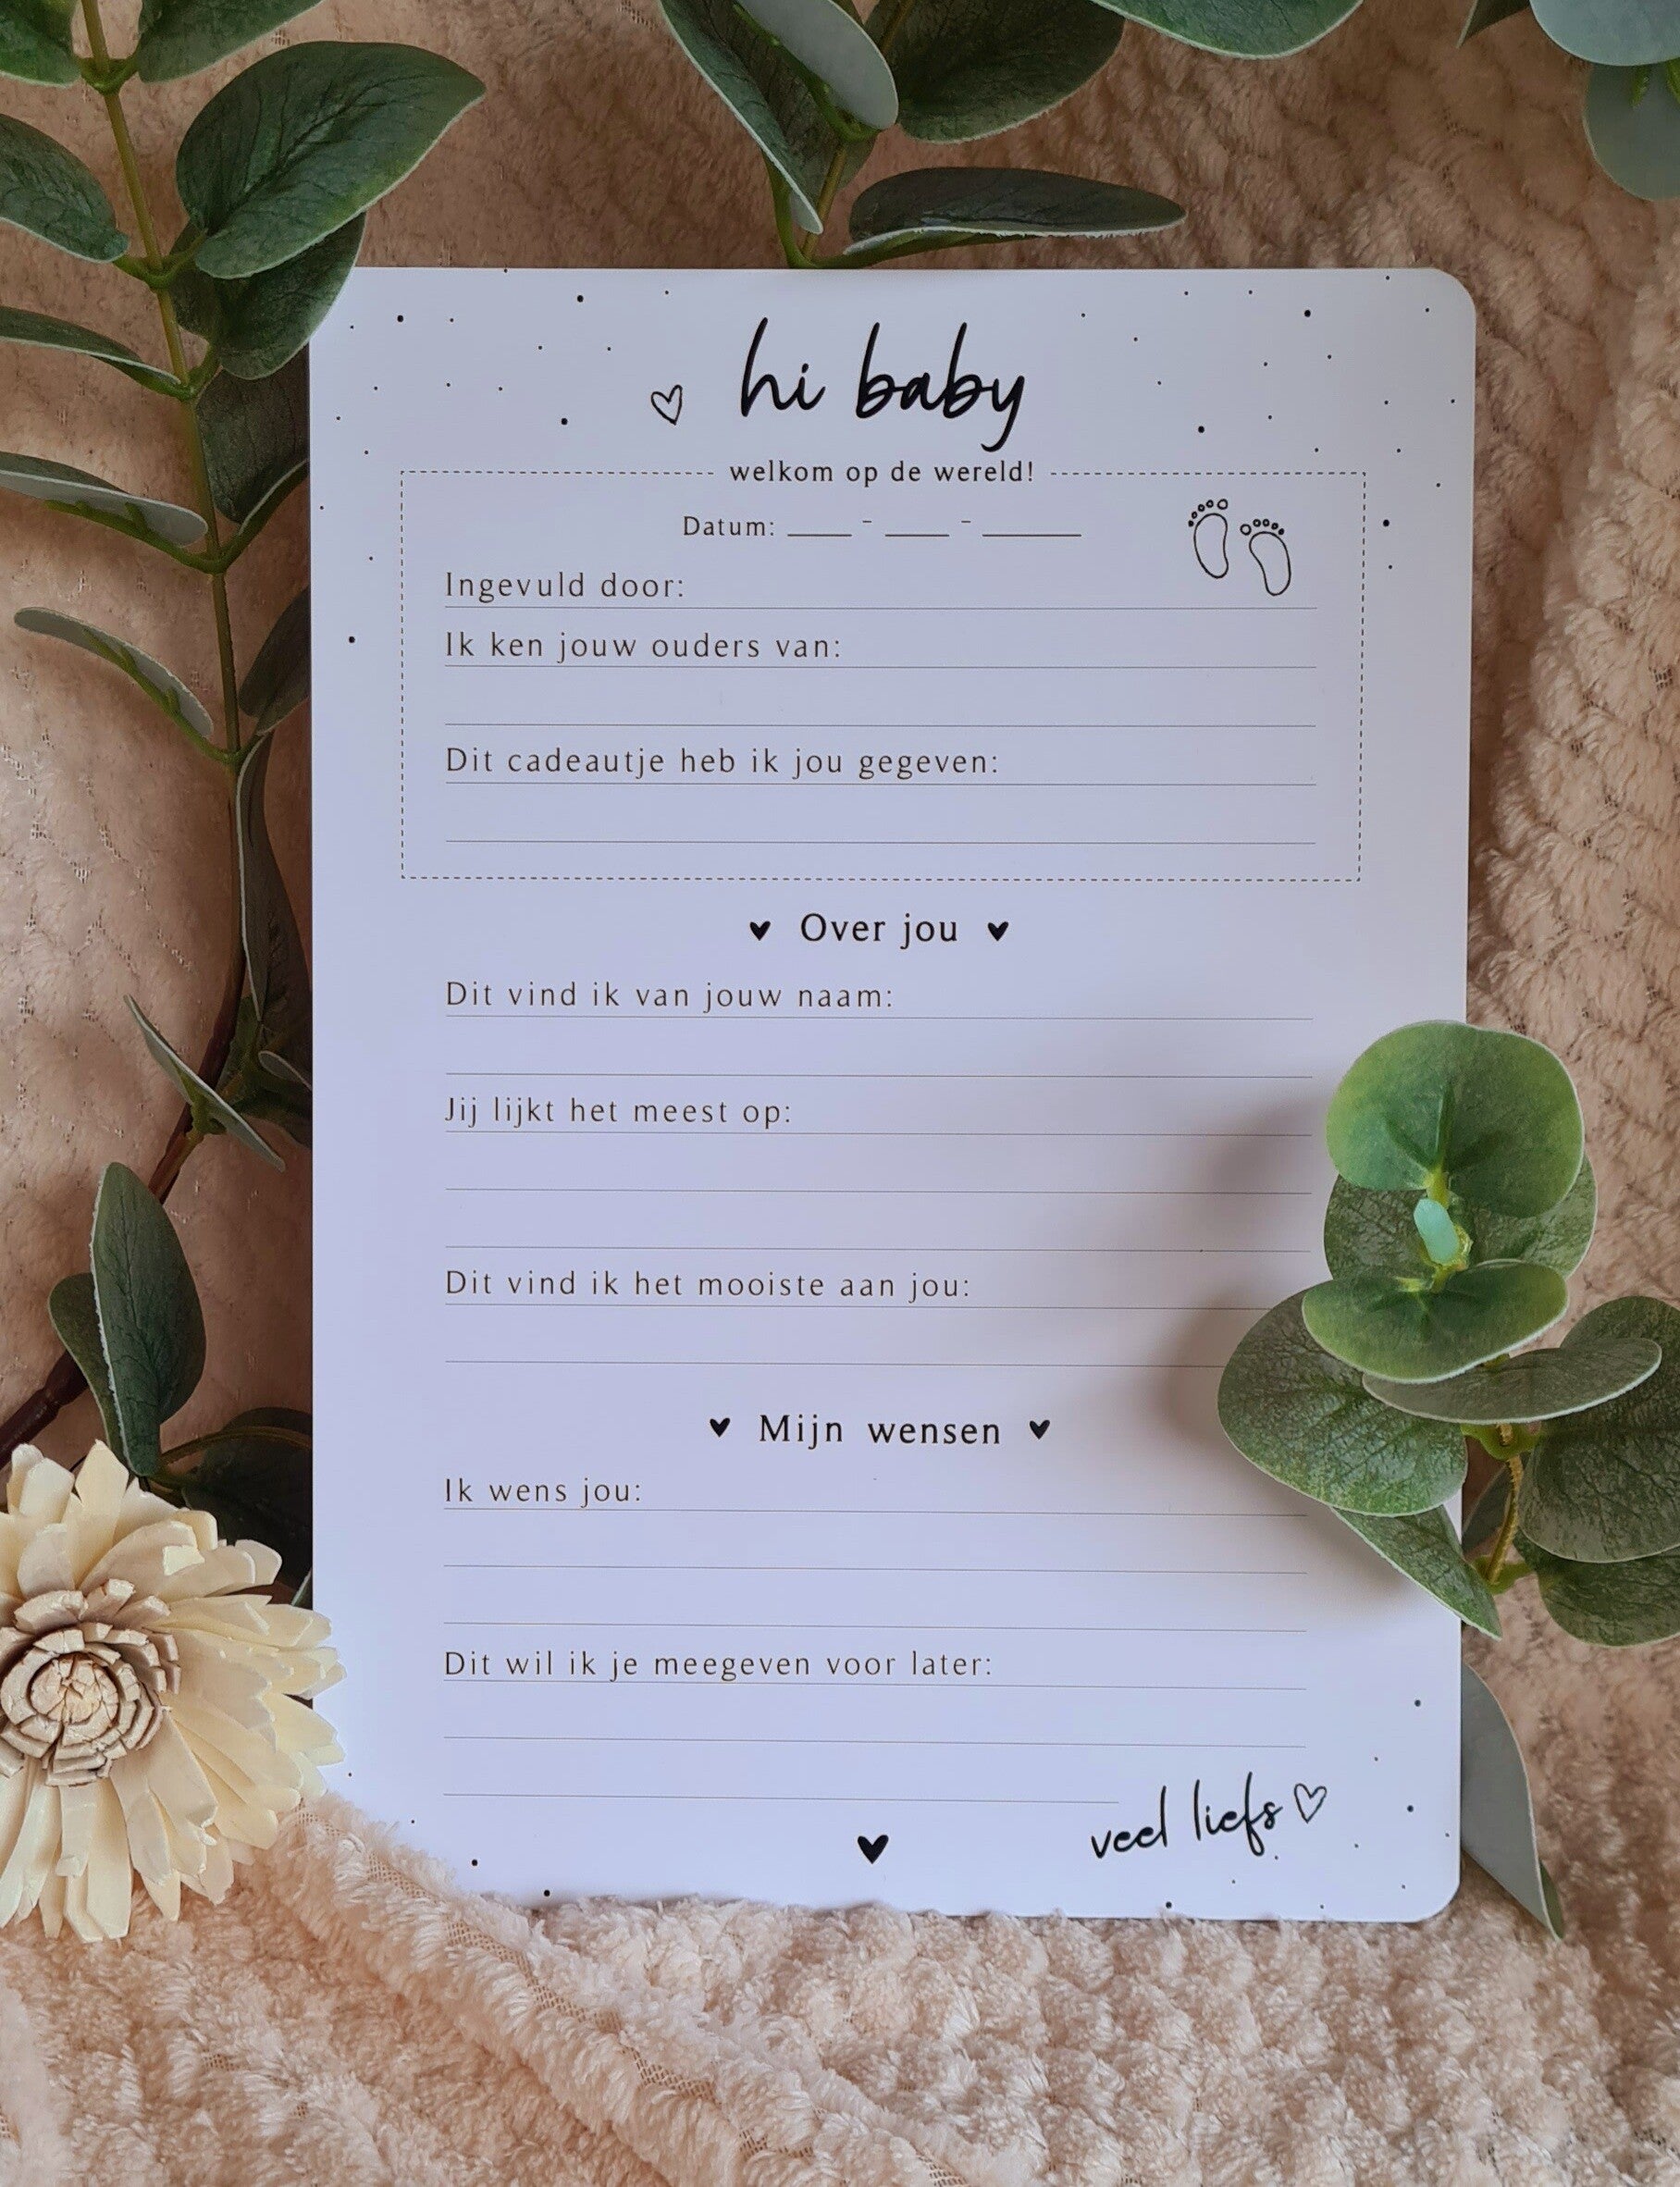 hi baby
welkom op de wereld!
Datum: ____ - ____ - ______
Ingevuld door:
Ik ken jouw ouders van:
Dit cadeautje heb ik jou gegeven:
Over jou
Dit vind ik van jouw naam:
Jij lijkt het meest op:
Dit vind ik het mooiste aan jou:
Mijn wensen
Ik wens jou:
Dit wil ik je meegeven voor later:
veel liefs